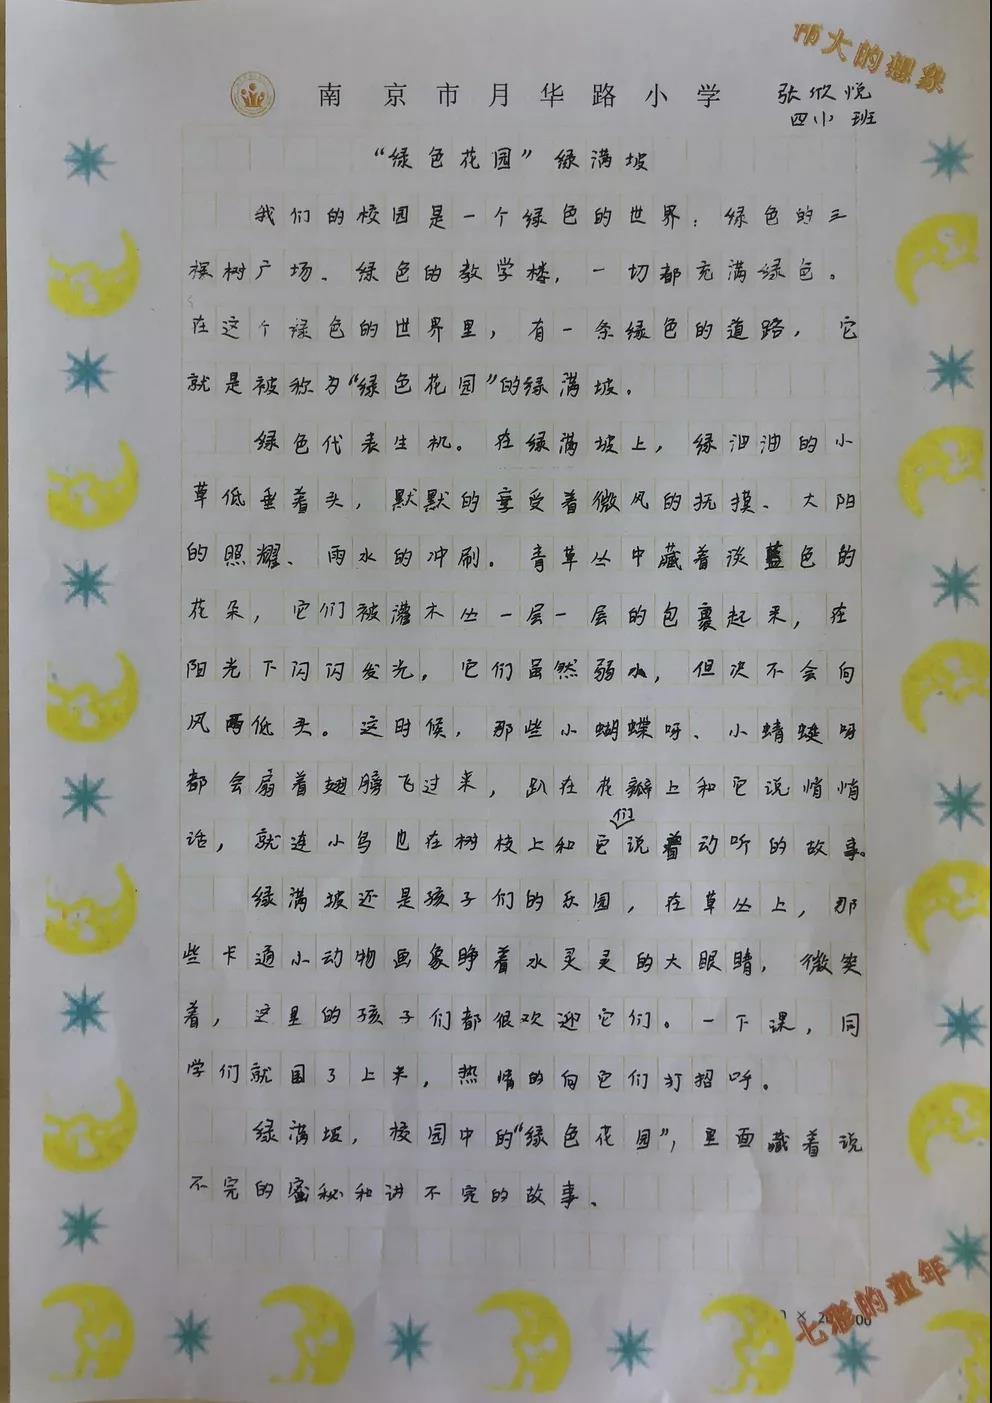 伟大的想象
南京市月华路小学
张欣悦
四小班
“绿色花园”绿满坡
我们的校园是一个绿色的世界：绿色的三
棵树广场、绿色的教学楼，一切都充满绿色。
在这个绿色的世界里，有一条绿色的道路，它
就是被称为“绿色花园”的绿满坡。
绿色代表生机。在绿满坡上，绿油油的小
草低垂着头，默默的享受着微风的抚摸、大阳
的照耀、雨水的冲刷。青草丛中藏着淡蓝色的
花朵，它们被灌木丛一层一层的包裹起来，在
阳光下闪闪发光，它们虽然弱小，但决不会向
风雨低头。这时候，那些小蝴蝶呀、小蜻蜓呀
都会扇着翅膀飞过来，趴在花瓣上和它说悄悄
话，就连小鸟也在树枝上和它们说着动听的故事。
绿满坡还是孩子们的乐园，在草丛上，那
些卡通小动物画象睁着水灵灵的大眼睛，微笑
着，这里的孩子们都很欢迎它们。一下课，同
学们就围了上来，热情的向它们打招呼。
绿满坡，校园中的“绿色花园”，里面藏着说
不完的蜜秘和讲不完的故事。
七雅的童年